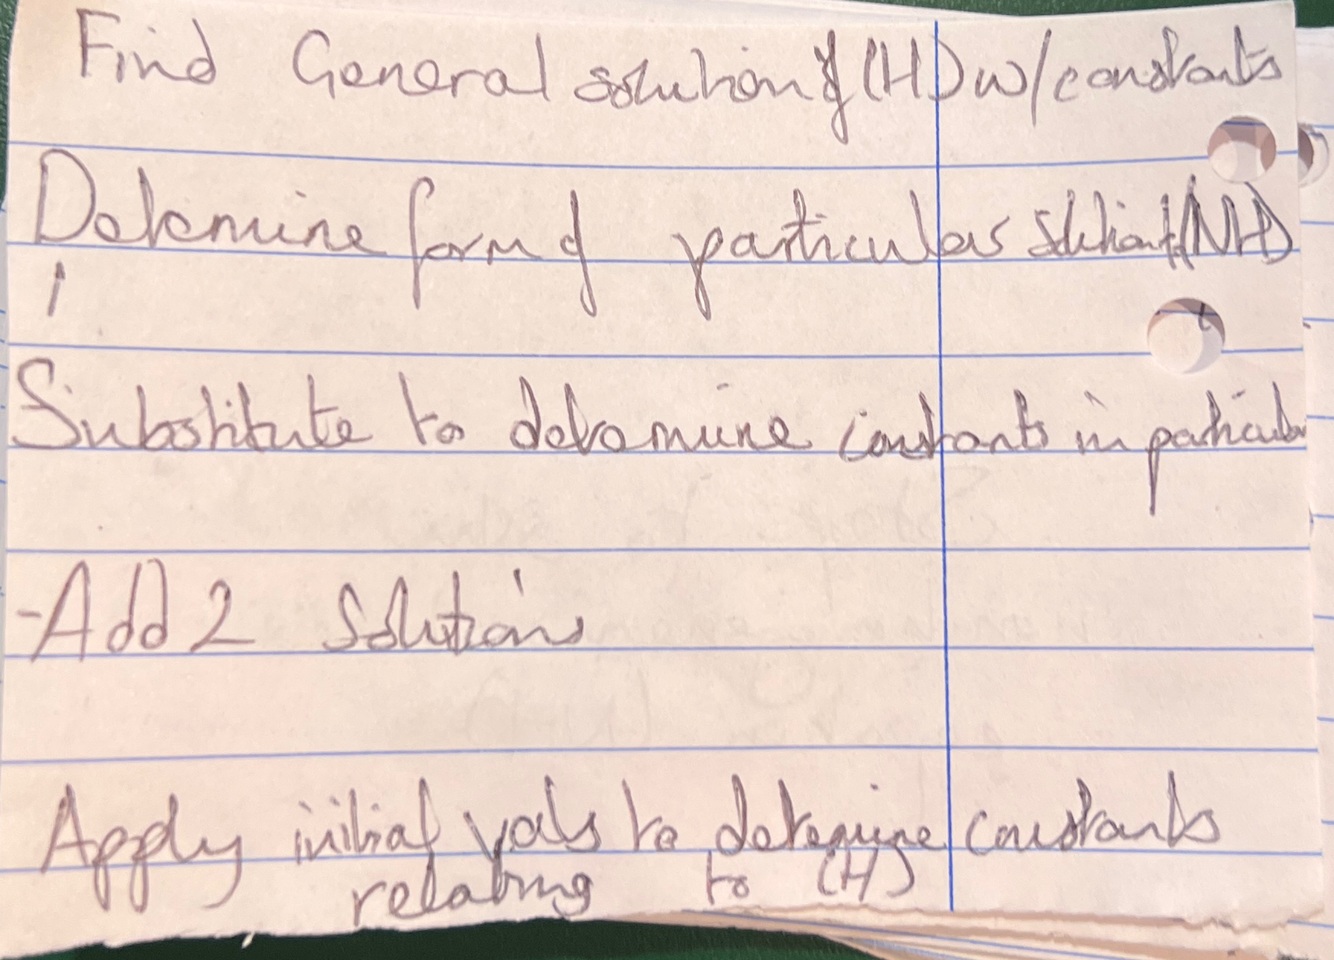 Find General solution of (H) w/constants
Determine form of particular solution of (NH)
Substitute to determine constants in particular
-Add 2 solutions
Apply initial vals to determine constants
relating to (H)